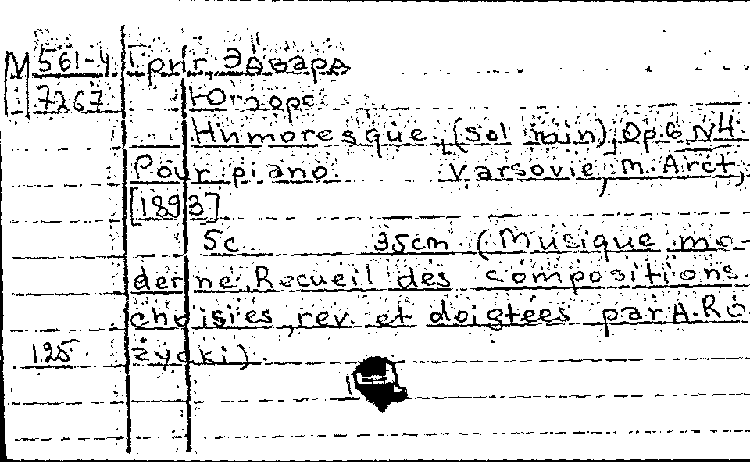 M 561-4 Григ, Эдвард
7267 Юморес
Humoresque, (sol min), Op.6 N4.
Pour piano. Varsovie, M. Arct,
[1893]
5c 35cm (Musique mo-
derne, Recueil des compositions
choisies, rev. et doigtées par A. Ró
125 życki)